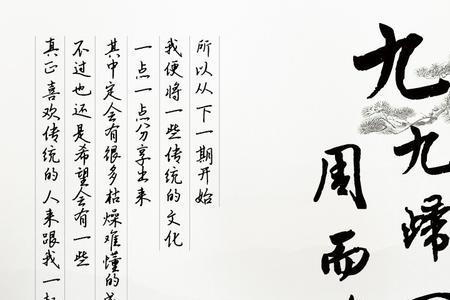 九九歸
周而
所以从下一期开始
我便将一些传统的文化
一点一点分享出来
其中定会有很多枯燥难懂的
不过也还是希望会有一些
真正喜欢传统的人来跟我一